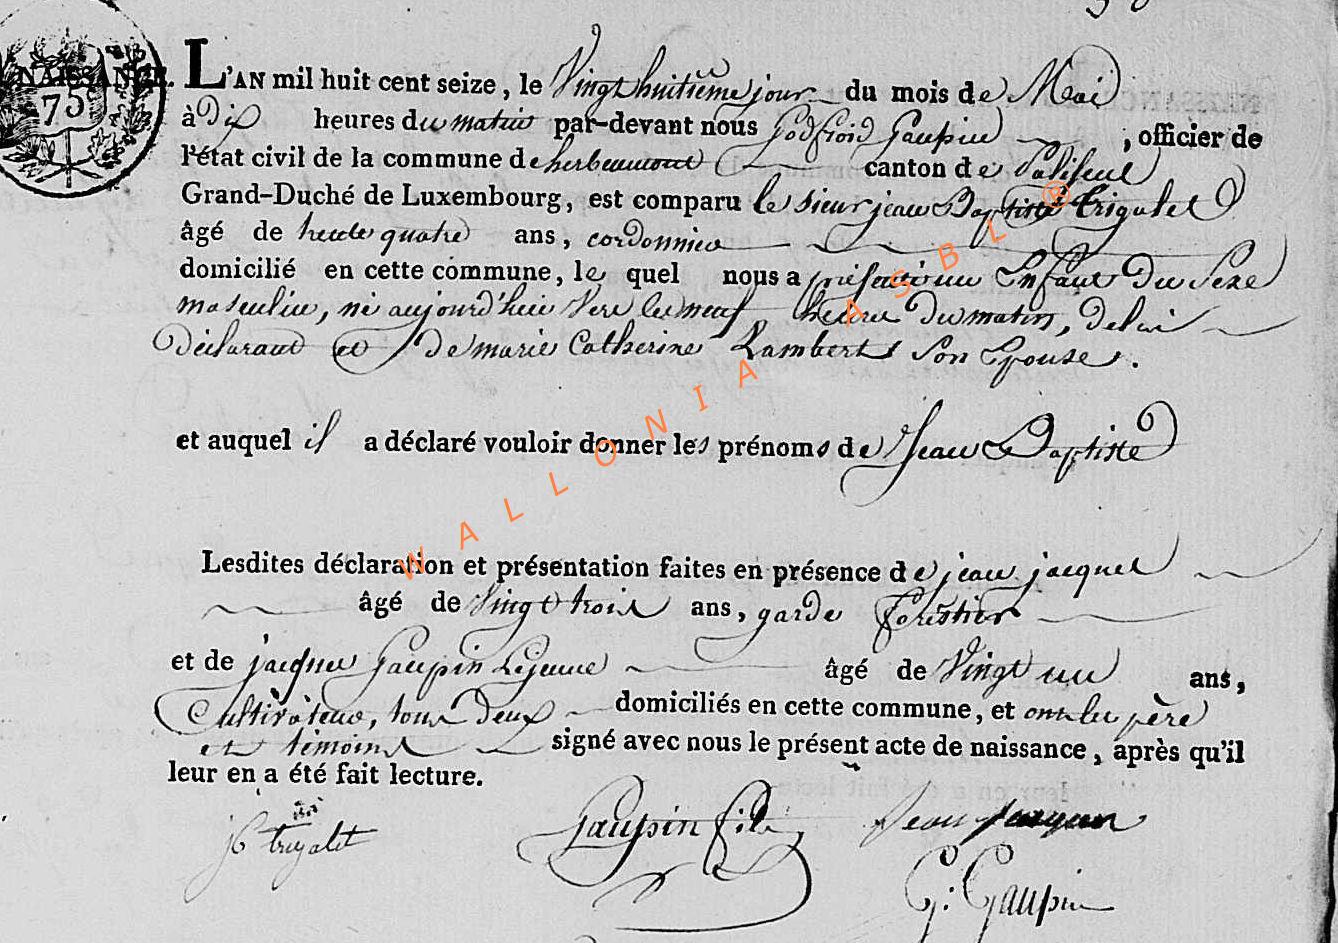 NAISSANCE.
75
L'AN mil huit cent seize, le Vingt huitième jour du mois de Mai
à Dix heures du matin par-devant nous Godfroid Gaupin, officier de
l'état civil de la commune de herbeumont canton de Paliseul
Grand-Duché de Luxembourg, est comparu le sieur jean Baptiste Trigalet
âgé de trente quatre ans, cordonnier
domicilié en cette commune, le quel nous a présenté un Enfant Du Sexe
masculin, né aujourd'hui Vers les neuf heures Du matin, de lui
déclarant et de marie Catherine Lambert Son Epouse.
et auquel il a déclaré vouloir donner les prénoms de Jean Baptiste
Lesdites déclaration et présentation faites en présence de jean jacques
âgé de Vingt trois ans, garde forestier
et de jacques Gaupin Lejeune âgé de Vingt un ans,
Cultivateur, tous Deux domiciliés en cette commune, et ont les père
et témoins signé avec nous le présent acte de naissance, après qu'il
leur en a été fait lecture.
Gaupin fils Jean
G: Gaupin
WALLONIA ASBL®